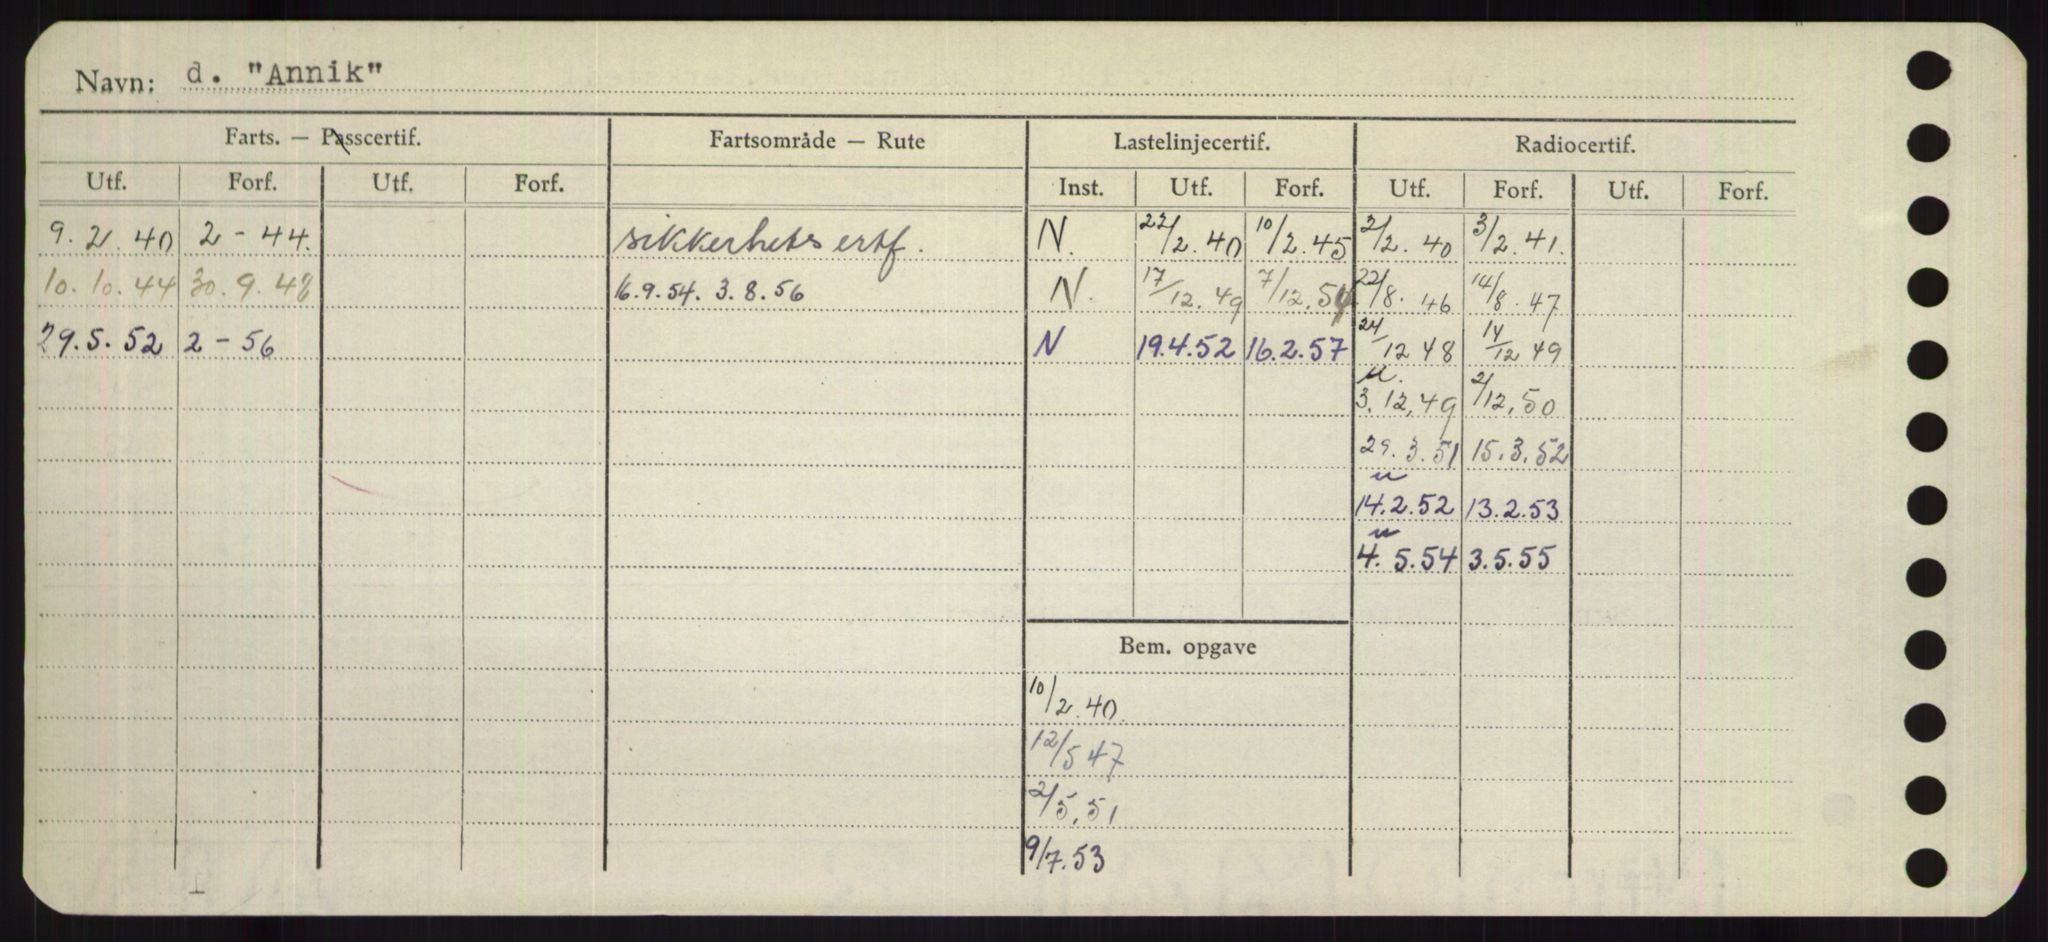 Navn: d. "Annik"
Farts. — Passcertif. Fartsområde — Rute Lastelinjecertif. Radiocertif.
Utf. Forf. Utf. Forf. Inst. Utf. Forf. Utf. Forf. Utf. Forf.
9. 2. 40 2 - 44. sikkerhets ertf. N. 22/2. 40 10/2. 45 2/2. 40 3/2. 41.
10. 10. 44 30. 9. 48 16.9.54. 3.8.56 N. 17/12. 49 7/12. 54 22/8. 46 14/8. 47
29.5.52 2 - 56 N 19.4.52 16.2.57 24/12 48 14/12 49
u.
3. 12, 49 2/12, 50
29. 3. 51 15. 3. 52
u
14.2.52 13.2.53
u
4. 5. 54 3.5.55
Bem. opgave
10/2. 40.
12/5 47
2/5, 51
9/7. 53